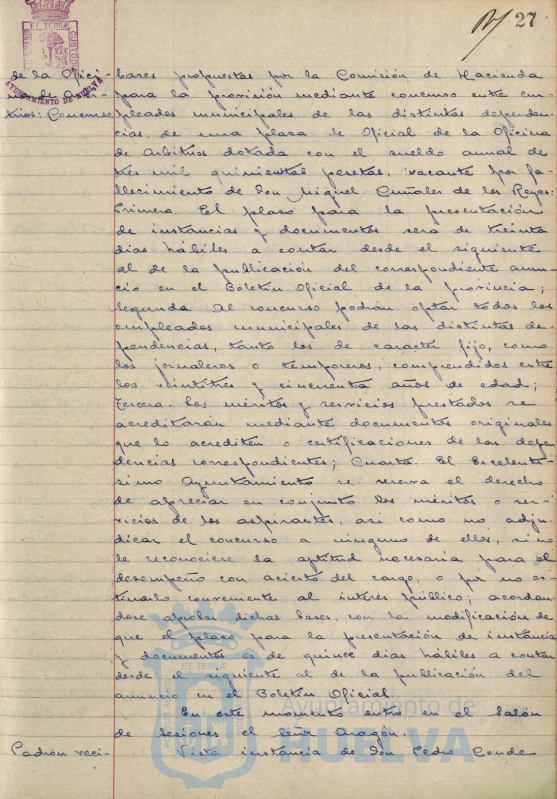 27
de la Ofici-
na de Arbi-
trios: Concurso
AYUNTAMIENTO DE HUELVA
bases propuestas por la Comisión de Hacienda
para la provisión mediante concurso entre em-
pleados municipales de las distintas dependen-
cias, de una plaza de Oficial de la Oficina
de Arbitrios dotada con el sueldo anual de
tres mil quinientas pesetas, vacante por fa-
llecimiento de Don Miguel de los Reyes:
Primera. El plazo para la presentación
de instancias y documentos sera de treinta
dias hábiles a contar desde el siguiente
al de la publicación del correspondiente anun-
cio en el Boletin Oficial de la provincia;
Segunda. Al concurso podrán optar todos los
empleados municipales de las distintas de-
pendencias, tanto los de caracter fijo, como
los jornaleros o temporeros, comprendidos entre
los veintitres y cincuenta años de edad;
Tercera. Los méritos y servicios prestados se
acreditarán mediante documentos originales
que lo acrediten o certificaciones de las depen-
dencias correspondientes; Cuarta. El Excelenti-
simo Ayuntamiento se reserva el derecho
de apreciar en conjunto los méritos o ser-
vicios de los aspirantes, asi como no adju-
dicar el concurso a ninguno de ellos, si no
le reconociere la aptitud necesaria para el
desempeño con acierto del cargo, o por no es-
timarlo conveniente al interés público; acordan-
dose aprobar dichas bases, con la modificación de
que el plazo para la presentación de instancias
y documentos es de quince dias hábiles a contar
desde el siguiente al de la publicación del
anuncio en el Boletin Oficial.
En este momento entro en el Salón
de Sesiones el señor Aragón.
Padron veci-
Vista instancia de Don Pedro Conde
Ayuntamiento de
HUELVA